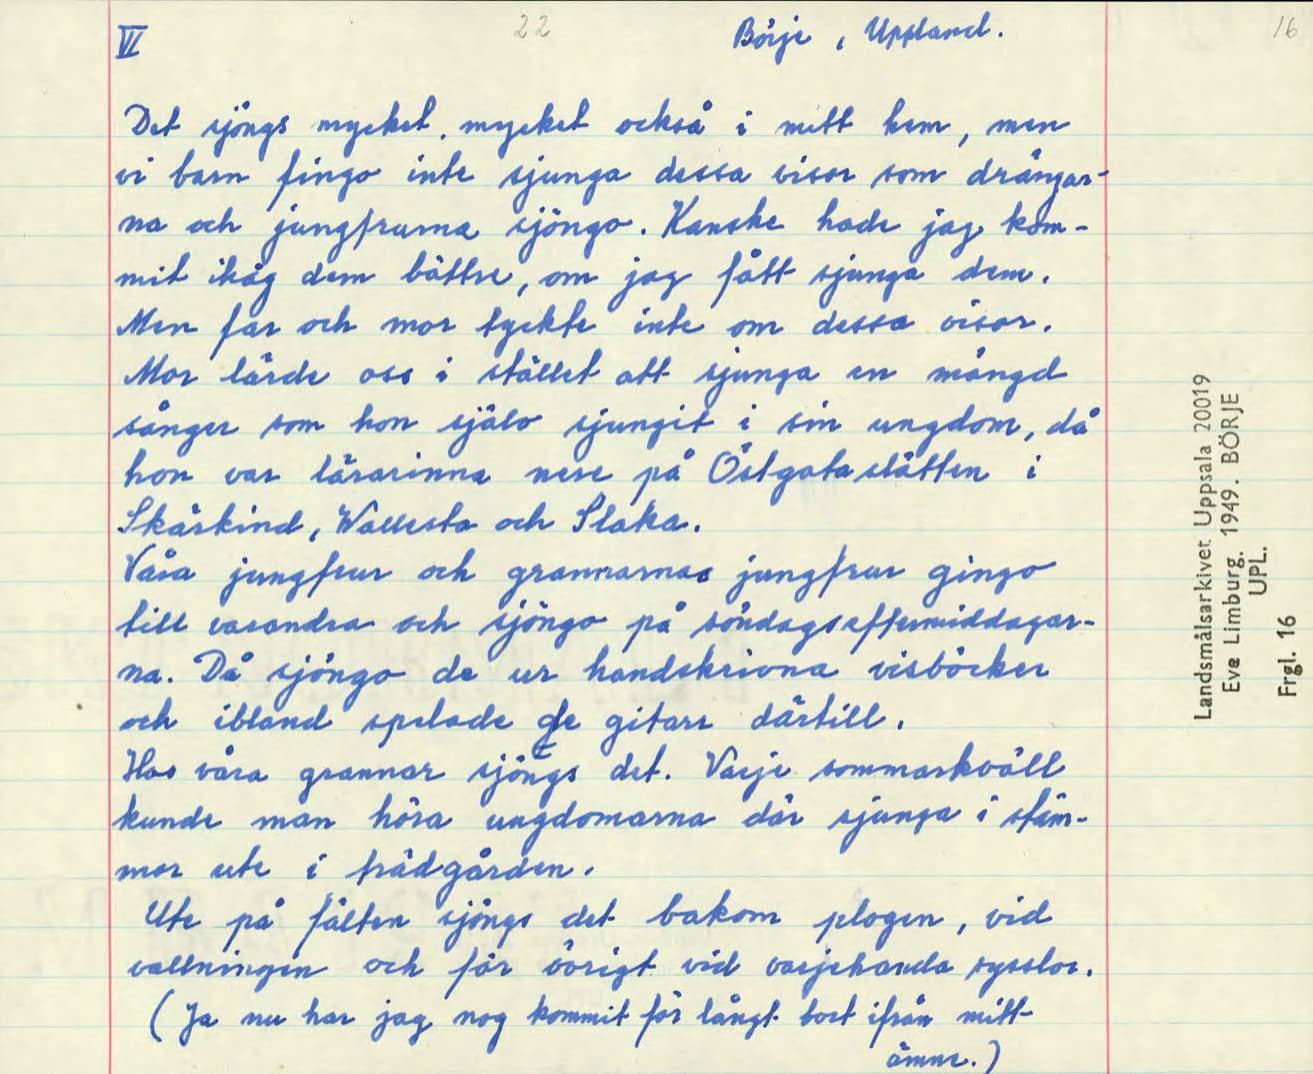 VI 22 Börje, Uppland. 16
Det sjöngs mycket, mycket också i mitt hem, men
vi barn fingo inte sjunga dessa visor som drängar-
na och jungfrurna sjöngo. Kanske hade jag kom-
mit ihåg dem bättre, om jag fått sjunga dem.
Men far och mor tyckte inte om dessa visor.
Mor lärde oss i stället att sjunga en mängd
sånger som hon själv sjungit i sin ungdom, då
hon var lärarinna nere på Östgötaslätten i
Skärkind, Wallerstad och Slaka.
Våra jungfrur och grannarnas jungfrur gingo
till varandra och sjöngo på söndagseftermiddagar-
na. Då sjöngo de ur handskrivna visböcker
och ibland spelade de gitarr därtill.
Hos våra grannar sjöngs det. Varje sommarkväll
kunde man höra ungdomarna där sjunga i stäm-
mor ute i trädgården.
Ute på fälten sjöngs det bakom plogen, vid
vallningen och för övrigt vid varjehanda sysslor.
(Ja nu har jag nog kommit för långt bort ifrån mitt
ämne.)
Landsmålsarkivet Uppsala 20019
Eve Limburg. 1949. BÖRJE
UPL.
Frgl. 16